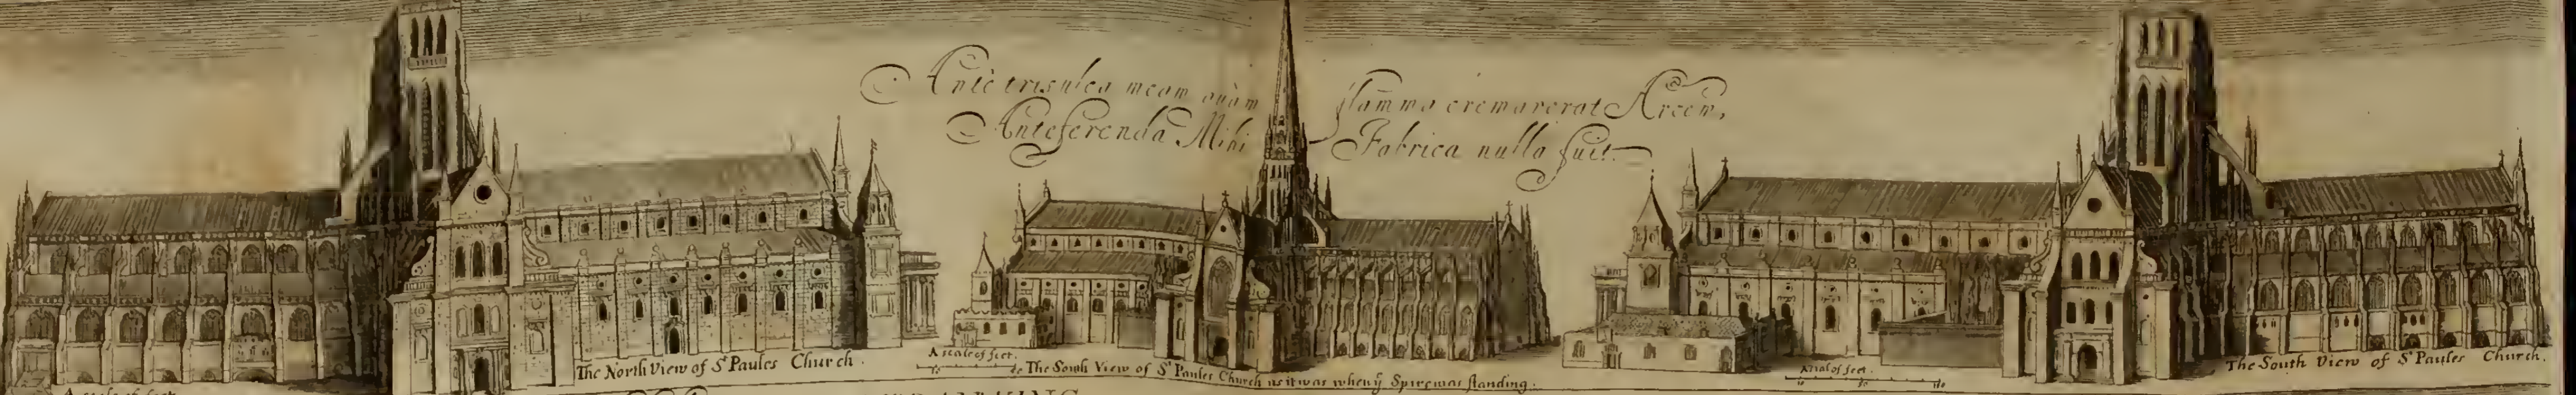 Ante trisulca meam quàm flam̃ma cremaverat Arcem,
Anteferenda Mihi Fabrica nulla fuit.
The North View of St Paules Church.
A scale of feet.
The South View of St Paules Church as it was when ye Spire was standing.
A scale of feet.
The South View of St Paules Church.
A scale of feet